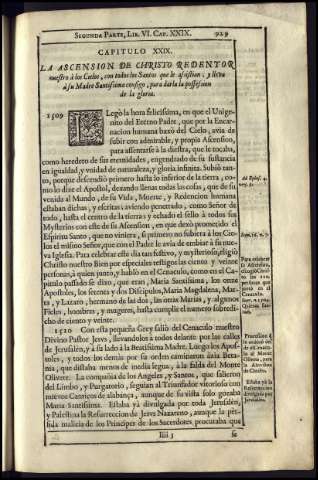 SEGUNDA PARTE, LIB. VI. CAP. XXIX. 929
CAPITULO XXIX.
LA ASCENSION DE CHRISTO REDENTOR
nuestro à los Cielos, con todos los Santos que le assistian: y lleva
à su Madre Santissima consigo, para darla la possession
de la gloria.
1509 Legò la hora felicissima, en que el Unigenito
del Eterno Padre, que por la Encarnacion
humana baxò del Cielo, avia de
subir con admirable, y propia Ascension,
para assentarse à la diestra, que le tocaba,
como heredero de sus eternidades, engendrado de su sustancia
en igualdad, y unidad de naturaleza, y gloria infinita. Subiò
tanto, porque descendiò primero hasta lo inferior de la tierra, como
lo dize el Apostol, dexando llenas todas las cosas, que de su
venida al Mundo, de su Vida, Muerte, y Redencion humana
estaban dichas, y escritas; aviendo penetrado, como Señor de
todo, hasta el centro de la tierra; y echado el sello à todos sus
Mysterios con este de su Ascension, en que dexò prometido el
Espiritu Santo, que no viniera, si primero no subiera à los Cielos
el mismo Señor, que con el Padre le avia de embiar à su nueva
Iglesia. Para celebrar este dia tan festivo, y mysterioso, eligiò
Christo nuestro Bien por especiales testigos las ciento y veinte
personas, à quien juntò, y hablò en el Cenaculo, como en el Capitulo
passado se dixo, que eran, Maria Santissima, los onze
Apostoles, los setenta y dos Discipulos, Maria Magdalena, Marta,
y Lazaro, hermano de las dos, las otras Marias, y algunos
Fieles, hombres, y mugeres, hasta cumplir el numero sobredicho
de ciento y veinte.
1510 Con esta pequeña Grey saliò del Cenaculo nuestro
Divino Pastor Jesus, llevandolos à todos delante por las calles
de Jerusalèn, y à su lado à la Beatissima Madre. Luego los Apostoles,
y todos los demàs por su orden caminaron àzia Betania,
que distaba menos de media legua, à la falda del Monte
Olivete. La compañia de los Angeles, y Santos, que salieron
del Limbo, y Purgatorio, seguian al Triunfador vitorioso con
nuevos Canticos de alabança, aunque de su vista solo gozaba
Maria Santissima. Estaba yà divulgada por toda Jerusalèn,
y Palestina la Resurreccion de Jesus Nazareno, aunque la pèssida
malicia de los Principes de los Sacerdotes procuraba que
Iiii 3 se
Ad Ephes. 4.
vers. 9.
Joan. 16. v. 7.
Para celebrar
la Ascension,
eligiò Christo
las 120.
personas que
juntò en el
Cenaculo.